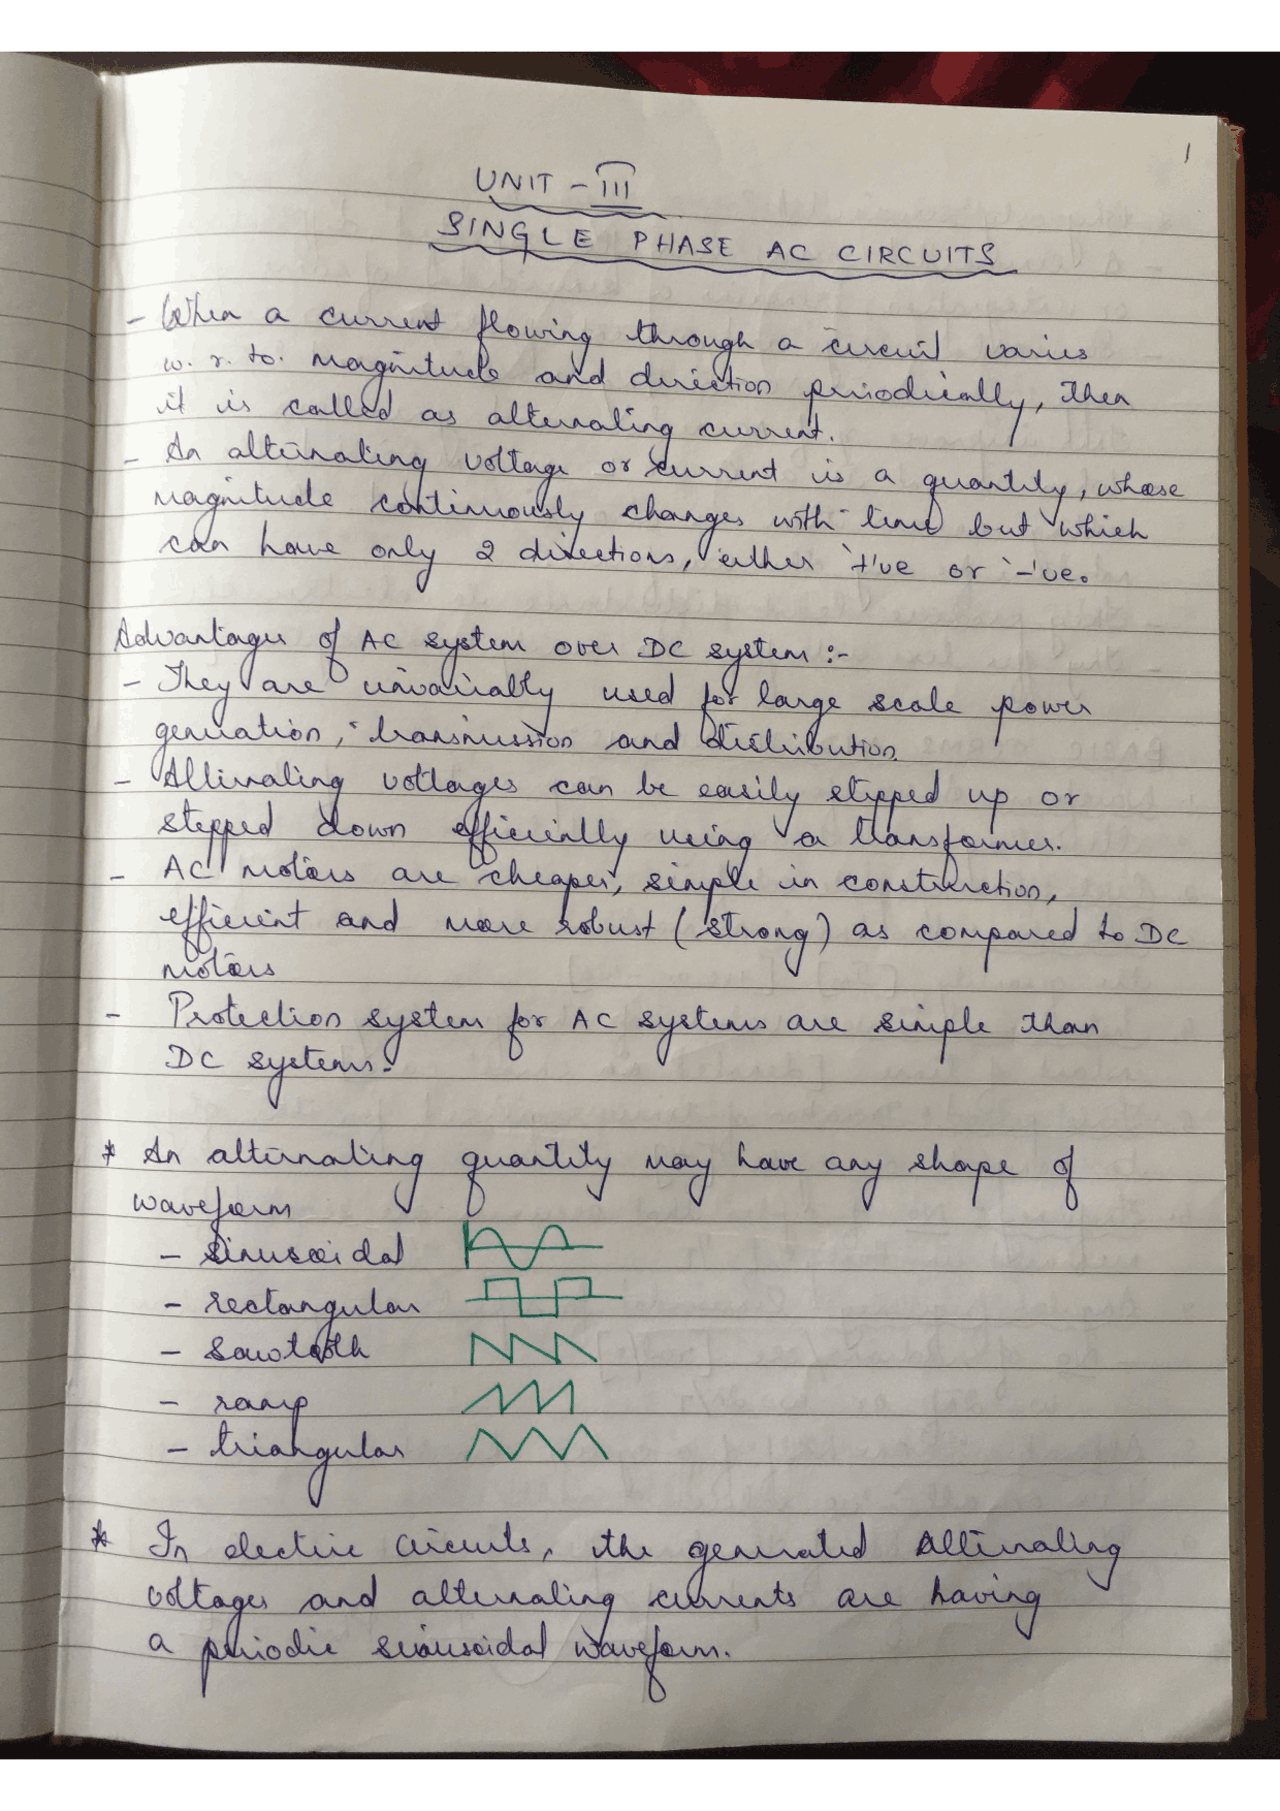 1
UNIT - III
SINGLE PHASE AC CIRCUITS
- When a current flowing through a circuit varies
w. r. to. magnitude and direction periodically, then
it is called as alternating current.
- An alternating voltage or current is a quantity, whose
magnitude continuously changes with time but which
can have only 2 directions, either '+'ve or '-'ve.
Advantages of AC system over DC system :-
- They are invariably used for large scale power
generation, transmission and distribution.
- Alternating voltages can be easily stepped up or
stepped down efficiently using a transformer.
- AC motors are cheaper, simple in construction,
efficient and more robust (strong) as compared to DC
motors
- Protection system for AC systems are simple than
DC systems.
* An alternating quantity may have any shape of
waveform
- Sinusoidal
- rectangular
- Sawtooth
- ramp
- triangular
* In electric circuits, the generated Alternating
voltages and alternating currents are having
a periodic sinusoidal waveform.